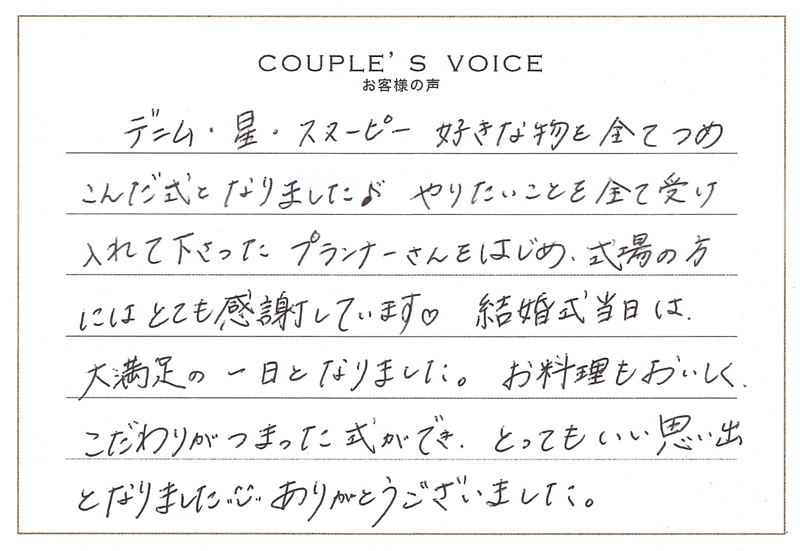 COUPLE'S VOICE
お客様の声
デニム・星・スヌーピー 好きな物を全てつめ
こんだ式となりました♪ やりたいことを全て受け
入れて下さった プランナーさんをはじめ、式場の方
にはとても感謝しています♡ 結婚式当日は、
大満足の一日となりました。 お料理もおいしく、
こだわりがつまった式ができ、とってもいい思い出
となりました ありがとうございました。